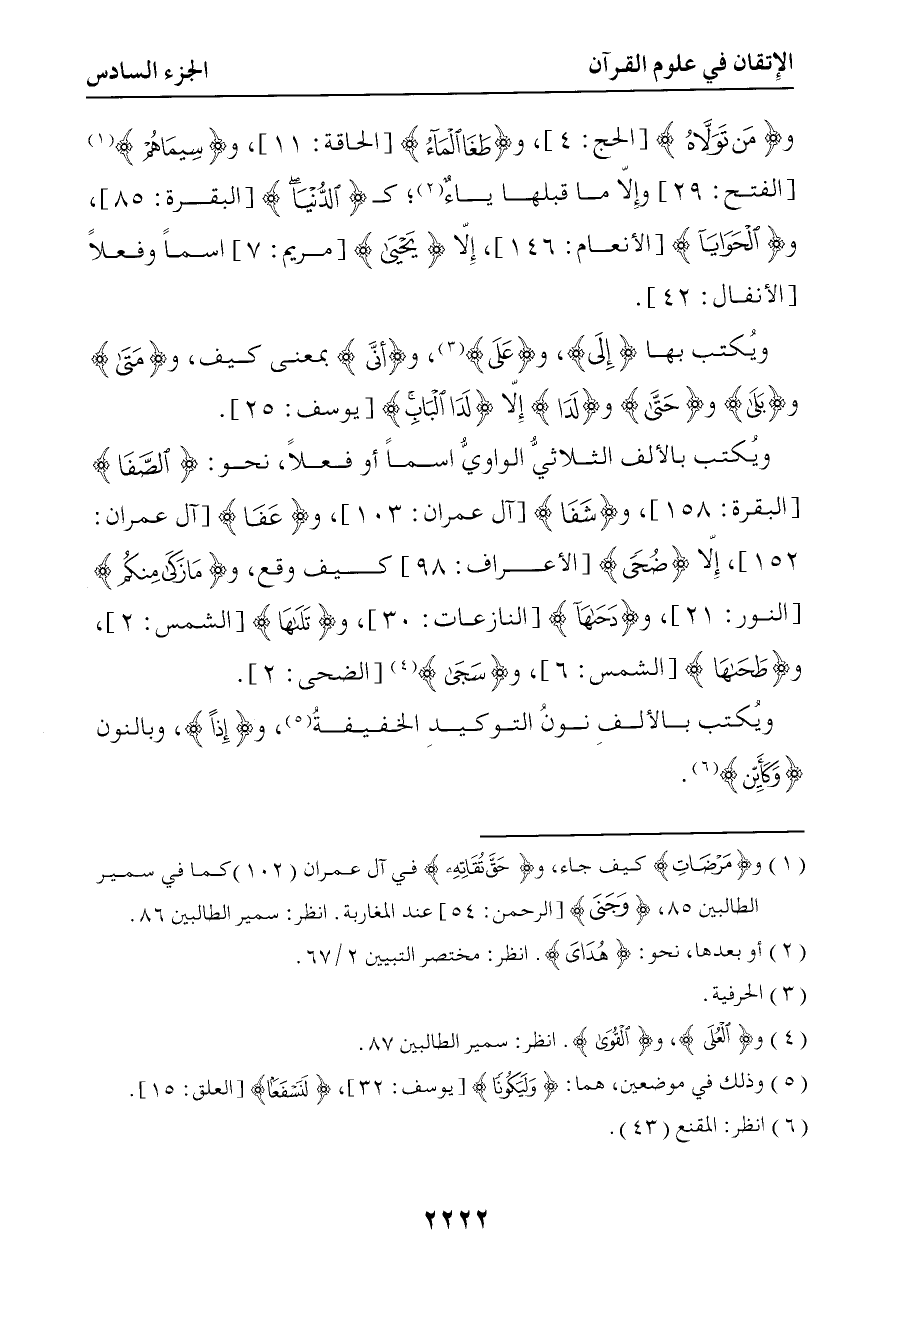 الإتقان في علوم القرآن
الجزء السادس
و﴿ مَن تَوَلَّاهُ ﴾ [الحج: ٤]، و﴿طَغَا ٱلْمَآءُ ﴾ [الحاقة: ١١]، و﴿ سِيمَاهُمْ ﴾(١)
[الفتح: ٢٩] وإلّا ما قبلها ياءٌ(٢)؛ كـ﴿ ٱلدُّنْيَا ﴾ [البقرة: ٨٥]،
و﴿ ٱلْحَوَايَآ ﴾ [الأنعام: ١٤٦]، إلّا ﴿ يَحْيَىٰ ﴾ [مريم: ٧] اسماً وفعلاً
[الأنفال: ٤٢].
ويُكتب بها ﴿ إِلَى﴾، و﴿عَلَى﴾(٣)، و﴿أَنَّى ﴾ بمعنى كيف، و﴿مَتَىٰ ﴾
و﴿بَلَىٰ﴾ و﴿ حَتَّى﴾ و﴿لَدَا ﴾ إلّا ﴿لَدَا ٱلْبَابِۚ﴾ [يوسف: ٢٥].
ويُكتب بالألف الثلاثيُّ الواويُّ اسماً أو فعلاً، نحو: ﴿ ٱلصَّفَا ﴾
[البقرة: ١٥٨]، و﴿شَفَا ﴾ [آل عمران: ١٠٣]، و﴿ عَفَا ﴾ [آل عمران:
١٥٢]، إلّا ﴿ضُحًى ﴾ [الأعراف: ٩٨] كيف وقع، و﴿ مَا زَكَىٰ مِنكُم ﴾
[النور: ٢١]، و﴿دَحَىٰهَآ ﴾ [النازعات: ٣٠]، و﴿ تَلَىٰهَا ﴾ [الشمس: ٢]،
و﴿ طَحَىٰهَا ﴾ [الشمس: ٦]، و﴿سَجَىٰ ﴾(٤) [الضحى: ٢].
ويُكتب بالألف نونُ التوكيد الخفيفةُ(٥)، و﴿ إِذاً ﴾، وبالنون
﴿ وَكَأَيِّن ﴾(٦).
(١) و﴿مَرْضَاتِ﴾ كيف جاء، و﴿ حَقَّ تُقَاتِهِۦ ﴾ في آل عمران (١٠٢) كما في سمير
الطالبين ٨٥، ﴿ وَجَنَى ﴾ [الرحمن: ٥٤] عند المغاربة. انظر: سمير الطالبين ٨٦.
(٢) أو بعدها، نحو: ﴿ هُدَايَ ﴾. انظر: مختصر التبيين ٢/ ٦٧.
(٣) الحرفية.
(٤) و﴿ ٱلْعُلَى ﴾، و﴿ ٱلْقُوَىٰ ﴾. انظر: سمير الطالبين ٨٧.
(٥) وذلك في موضعين، هما: ﴿ وَلَيَكُونًا ﴾ [يوسف: ٣٢]، ﴿ لَنَسْفَعًا﴾ [العلق: ١٥].
(٦) انظر: المقنع (٤٣).
٢٢٢٢